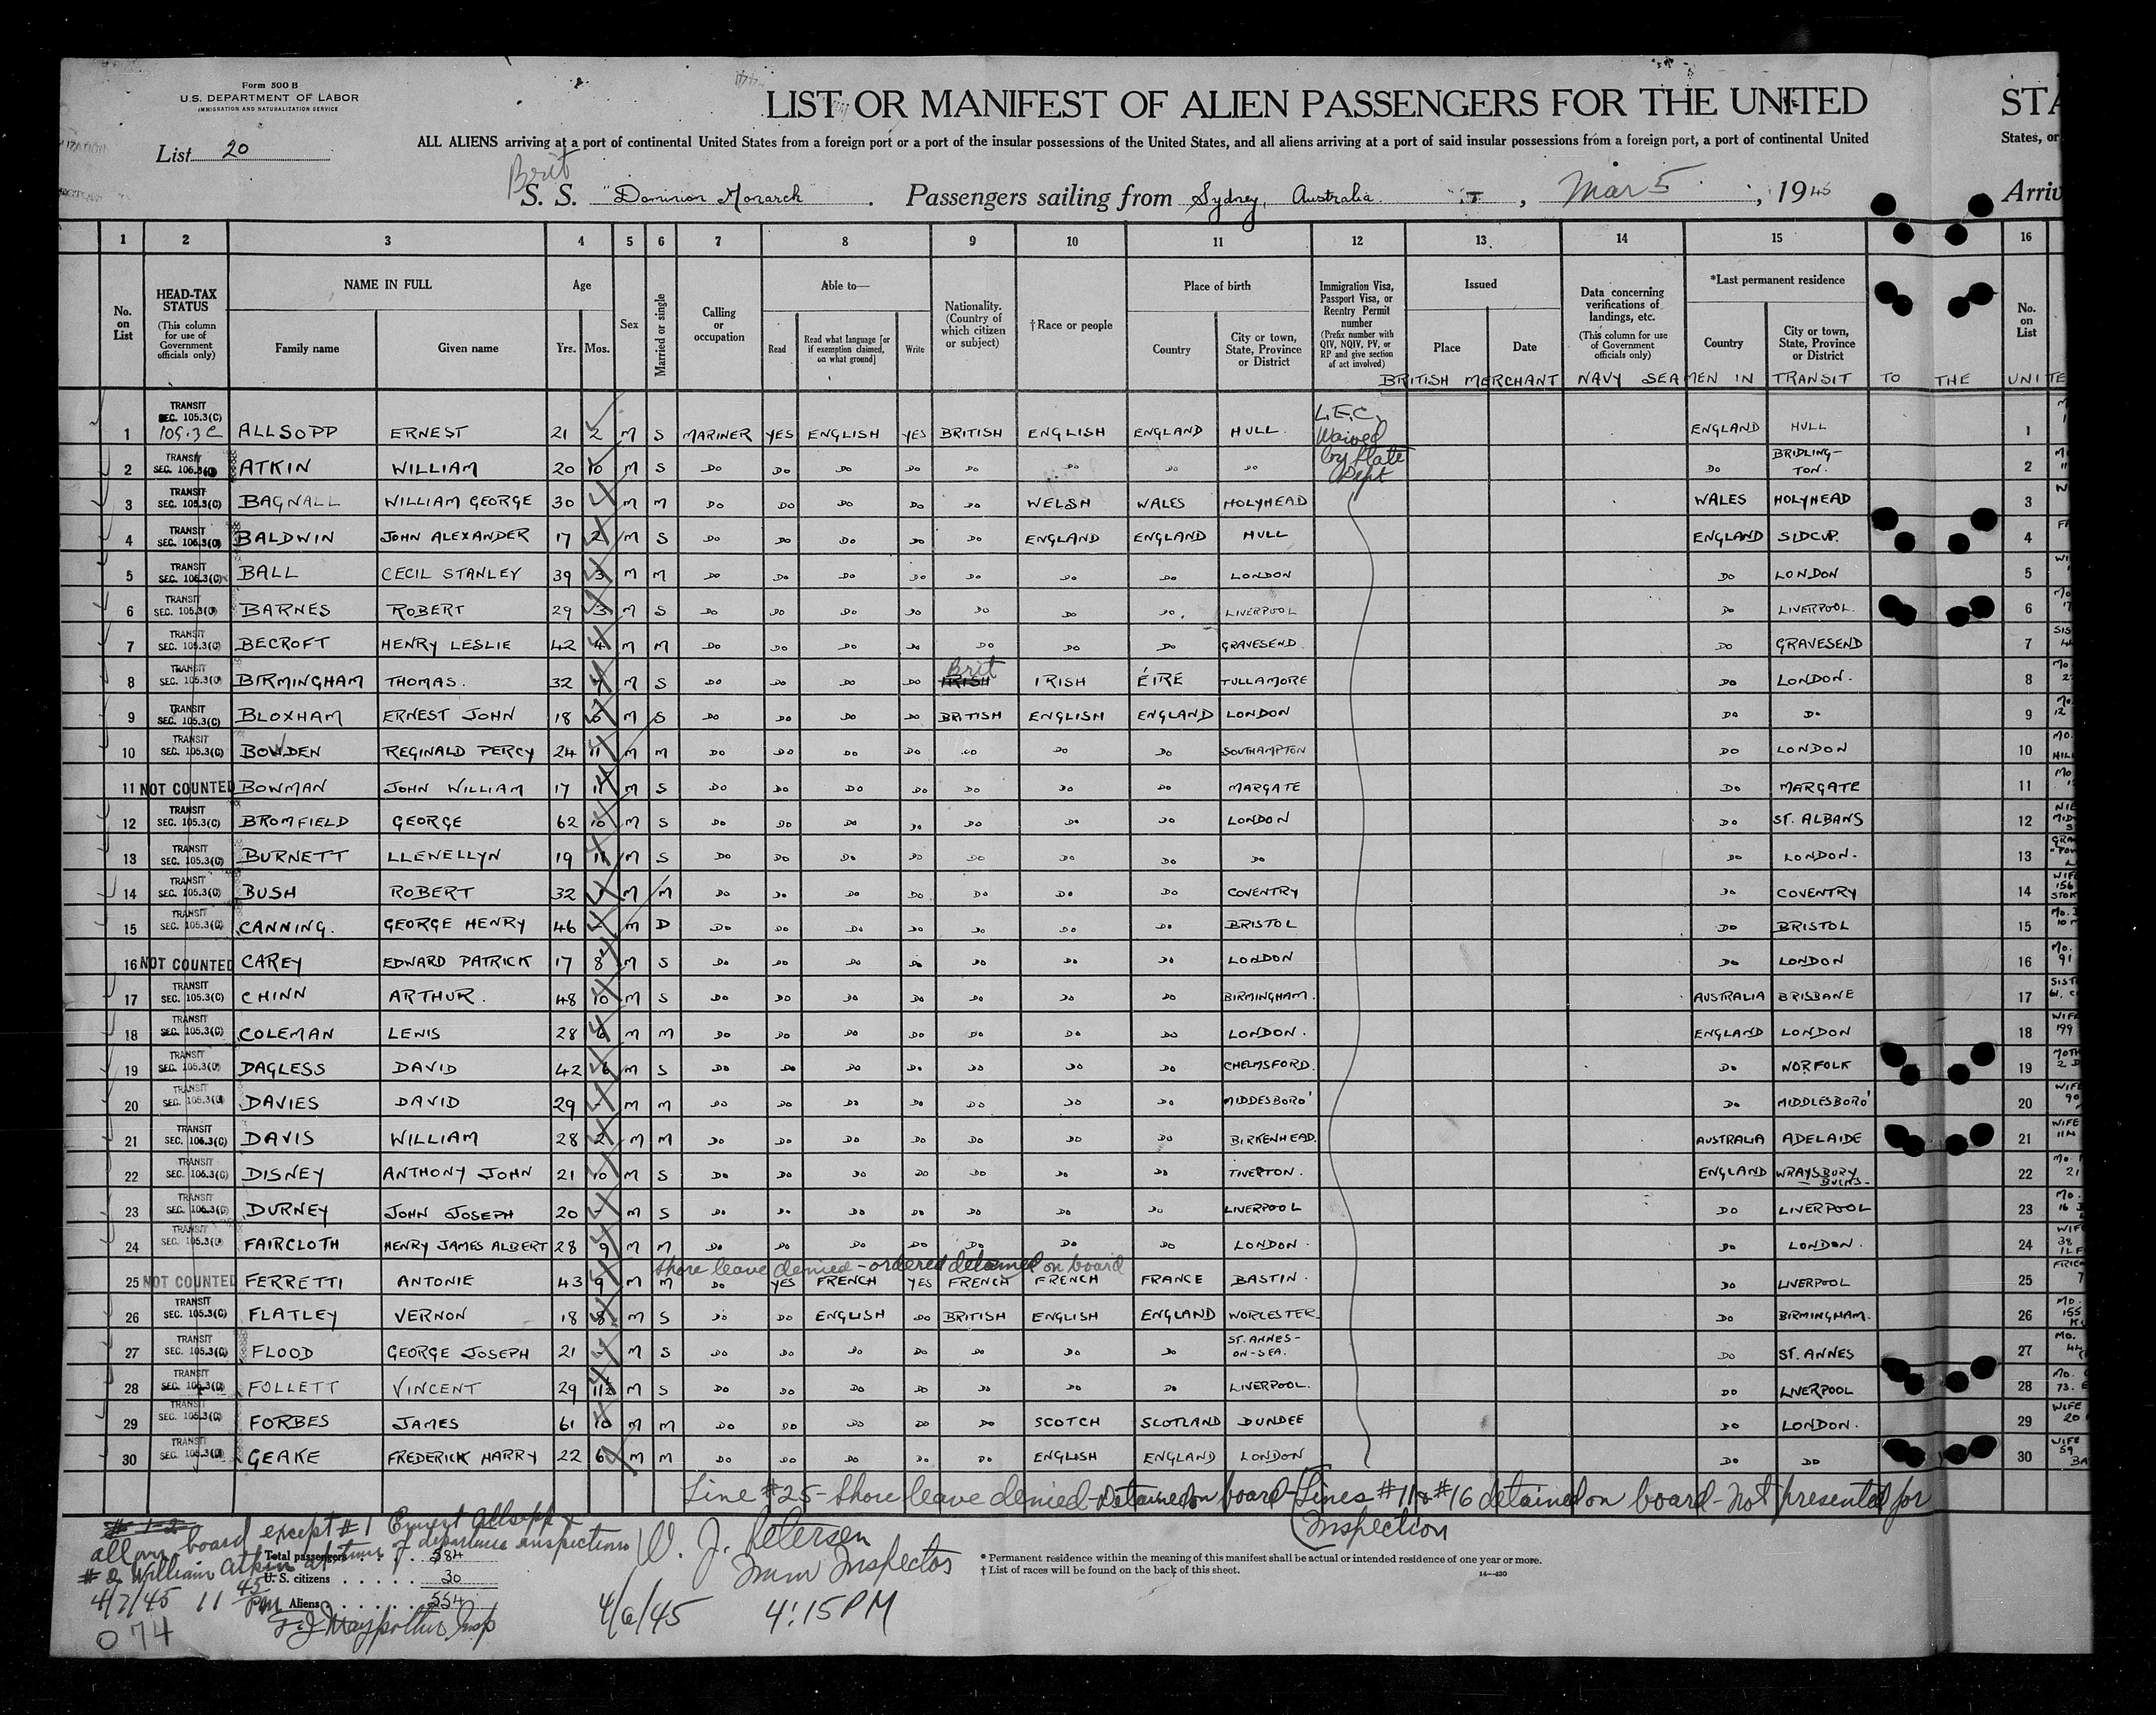 Form 500 B
U.S. DEPARTMENT OF LABOR
IMMIGRATION AND NATURALIZATION SERVICE
List 20
LIST OR MANIFEST OF ALIEN PASSENGERS FOR THE UNITED STA
ALL ALIENS arriving at a port of continental United States from a foreign port or a port of the insular possessions of the United States, and all aliens arriving at a port of said insular possessions from a foreign port, a port of continental United States, or
Brit
S. S. "Dominion Monarch" . Passengers sailing from Sydney, Australia. , Mar 5 , 1945 Arriv
1 2 3 4 5 6 7 8 9 10 11 12 13 14 15 16
No. on List
HEAD-TAX STATUS (This column for use of Government officials only)
NAME IN FULL Family name Given name
Age Yrs. Mos.
Sex
Married or single
Calling or occupation
Able to— Read Read what language [or if exemption claimed, on what ground] Write
Nationality. (Country of which citizen or subject)
†Race or people
Place of birth Country City or town, State, Province or District
Immigration Visa, Passport Visa, or Reentry Permit number (Prefix number with QIV, NQIV, PV, or RP and give section of act involved)
Issued Place Date
Data concerning verifications of landings, etc. (This column for use of Government officials only)
*Last permanent residence Country City or town, State, Province or District
No. on List
BRITISH MERCHANT NAVY SEAMEN IN TRANSIT TO THE UNITE
L.E.C. Waived by State Dept
1 TRANSIT SEC. 105.3(C) 105.3C ALLSOPP ERNEST 21 2 M S MARINER YES ENGLISH YES BRITISH ENGLISH ENGLAND HULL. ENGLAND HULL 1
2 TRANSIT SEC. 105.3(C) ATKIN WILLIAM 20 10 M S DO DO DO DO DO DO DO DO DO BRIDLING-TON. 2
3 TRANSIT SEC. 105.3(C) BAGNALL WILLIAM GEORGE 30 M M DO DO DO DO DO WELSH WALES HOLYHEAD WALES HOLYHEAD 3
4 TRANSIT SEC. 105.3(C) BALDWIN JOHN ALEXANDER 17 2 M S DO DO DO DO DO ENGLAND ENGLAND HULL ENGLAND SIDCUP. 4
5 TRANSIT SEC. 105.3(C) BALL CECIL STANLEY 39 3 M M DO DO DO DO DO DO DO LONDON DO LONDON 5
6 TRANSIT SEC. 105.3(C) BARNES ROBERT 29 3 M S DO DO DO DO DO DO DO. LIVERPOOL DO LIVERPOOL. 6
7 TRANSIT SEC. 105.3(C) BECROFT HENRY LESLIE 42 4 M M DO DO DO DO DO DO DO GRAVESEND. DO GRAVESEND 7
8 TRANSIT SEC. 105.3(C) BIRMINGHAM THOMAS. 32 M S DO DO DO DO IRISH Brit IRISH ÉIRE TULLAMORE DO LONDON. 8
9 TRANSIT SEC. 105.3(C) BLOXHAM ERNEST JOHN 18 M S DO DO DO DO BRITISH ENGLISH ENGLAND LONDON DO DO 9
10 TRANSIT SEC. 105.3(C) BOWDEN REGINALD PERCY 24 11 M M DO DO DO DO DO DO DO SOUTHAMPTON DO LONDON 10
11 NOT COUNTED BOWMAN JOHN WILLIAM 17 11 M S DO DO DO DO DO DO DO MARGATE DO MARGATE 11
12 TRANSIT SEC. 105.3(C) BROMFIELD GEORGE 62 10 M S DO DO DO DO DO DO DO LONDON DO ST. ALBANS 12
13 TRANSIT SEC. 105.3(C) BURNETT LLENELLYN 19 11 M S DO DO DO DO DO DO DO DO DO LONDON. 13
14 TRANSIT SEC. 105.3(C) BUSH ROBERT 32 M M DO DO DO DO DO DO DO COVENTRY DO COVENTRY 14
15 TRANSIT SEC. 105.3(C) CANNING. GEORGE HENRY 46 M D DO DO DO DO DO DO DO BRISTOL DO BRISTOL 15
16 NOT COUNTED CAREY EDWARD PATRICK 17 8 M S DO DO DO DO DO DO DO LONDON DO LONDON 16
17 TRANSIT SEC. 105.3(C) CHINN ARTHUR. 48 10 M S DO DO DO DO DO DO DO BIRMINGHAM. AUSTRALIA BRISBANE 17
18 TRANSIT SEC. 105.3(C) COLEMAN LEWIS 28 6 M M DO DO DO DO DO DO DO LONDON. ENGLAND LONDON 18
19 TRANSIT SEC. 105.3(C) DAGLESS DAVID 42 6 M S DO DO DO DO DO DO DO CHELMSFORD. DO NORFOLK 19
20 TRANSIT SEC. 105.3(C) DAVIES DAVID 29 - M M DO DO DO DO DO DO DO MIDDESBORO' DO MIDDLESBORO' 20
21 TRANSIT SEC. 105.3(C) DAVIS WILLIAM 28 2 M M DO DO DO DO DO DO DO BIRKENHEAD. AUSTRALIA ADELAIDE 21
22 TRANSIT SEC. 105.3(C) DISNEY ANTHONY JOHN 21 10 M S DO DO DO DO DO DO DO TIVERTON. ENGLAND WRAYSBURY BUCKS- 22
23 TRANSIT SEC. 105.3(C) DURNEY JOHN JOSEPH 20 - M S DO DO DO DO DO DO DO LIVERPOOL DO LIVERPOOL 23
24 TRANSIT SEC. 105.3(C) FAIRCLOTH HENRY JAMES ALBERT 28 9 M M DO DO DO DO DO DO DO LONDON. DO LONDON. 24
Shore leave denied - ordered detained on board
25 NOT COUNTED FERRETTI ANTONIE 43 9 M M DO YES FRENCH YES FRENCH FRENCH FRANCE BASTIN. DO LIVERPOOL 25
26 TRANSIT SEC. 105.3(C) FLATLEY VERNON 18 8 M S DO DO ENGLISH DO BRITISH ENGLISH ENGLAND WORCESTER. DO BIRMINGHAM. 26
27 TRANSIT SEC. 105.3(C) FLOOD GEORGE JOSEPH 21 M S DO DO DO DO DO DO DO ST. ANNES-ON-SEA. DO ST. ANNES 27
28 TRANSIT SEC. 105.3(C) FOLLETT VINCENT 29 11½ M S DO DO DO DO DO DO DO LIVERPOOL. DO LIVERPOOL 28
29 TRANSIT SEC. 105.3(C) FORBES JAMES 61 10 M M DO DO DO DO DO SCOTCH SCOTLAND DUNDEE DO LONDON. 29
30 TRANSIT SEC. 105.3(C) GEAKE FREDERICK HARRY 22 6 M M DO DO DO DO DO ENGLISH ENGLAND LONDON DO DO 30
Line #25 - Shore leave denied - Detained on board - Lines #11 & #16 detained on board - Not presented for
Inspection
# 1-2
all on board except #1 Ernest Allsopp &
#2 William Atkin at time of departure inspection
4/7/45 11 45 PM
Total passengers 584
U. S. citizens 30
Aliens 554
074
W. J. Petersen
Imm Inspector
4/6/45 4:15 PM
* Permanent residence within the meaning of this manifest shall be actual or intended residence of one year or more.
† List of races will be found on the back of this sheet.
14—430